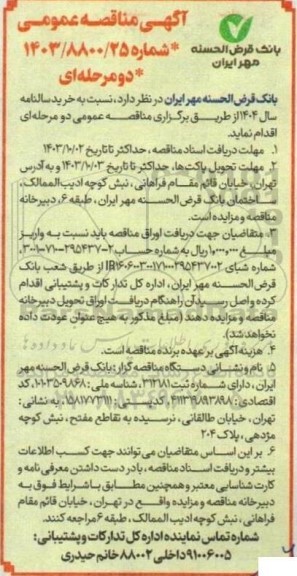 بانک قرض الحسنه
مهر ایران
آگهی مناقصه عمومی
*شماره ۱۴۰۳/۸۸۰۰/۲۵*
*دو مرحله‌ای
بانک قرض الحسنه مهر ایران در نظر دارد، نسبت به خرید سالنامه
سال ۱۴۰۴ از طریق برگزاری مناقصه عمومی دو مرحله‌ای
اقدام نماید.
۱. مهلت دریافت اسناد مناقصه، حداکثر تا تاریخ ۱۴۰۳/۱۰/۰۲
۲. مهلت تحویل پاکت‌ها، حداکثر تا تاریخ ۱۴۰۳/۱۰/۰۳ و به آدرس
تهران، خیابان قائم مقام فراهانی، نبش کوچه ادیب الممالک،
ساختمان بانک قرض الحسنه مهر ایران، طبقه ۶، دبیرخانه
مناقصه و مزایده است.
۳. متقاضیان جهت دریافت اوراق مناقصه باید نسبت به واریز
مبلغ ۱,۰۰۰,۰۰۰ ریال به شماره حساب
شماره شبای از طریق شعب بانک
قرض الحسنه مهر ایران، اداره کل تدارکات و پشتیبانی اقدام
کرده و اصل رسید آن را هنگام دریافت اوراق تحویل دبیرخانه
مناقصه و مزایده دهند (مبلغ مذکور به هیچ عنوان عودت داده
نخواهد شد).
۴. هزینه آگهی بر عهده برنده مناقصه است.
۵. نام و نشانی دستگاه مناقصه گزار: بانک قرض الحسنه مهر
ایران، دارای شماره ثبت ۳۱۲۸۱، شناسه ملی: ، کد
اقتصادی: ، کدپستی: ۱۵۸۱۷۷۳۱۱۱، به نشانی:
تهران، خیابان طالقانی، نرسیده به تقاطع مفتح، نبش کوچه
مژدهی، پلاک ۲۰۴
۶. بر این اساس متقاضیان می‌توانند جهت کسب اطلاعات
بیشتر و دریافت اسناد مناقصه، با در دست داشتن معرفی نامه و
کارت شناسایی معتبر و همچنین مطابق با شرایط فوق به
دبیرخانه مناقصه و مزایده واقع در تهران، خیابان قائم مقام
فراهانی، نبش کوچه ادیب الممالک، طبقه ۶ مراجعه کنند.
شماره تماس نماینده اداره کل تدارکات و پشتیبانی:
۹۱۰۰۶۰۰۵ داخلی ۸۸۰۰۲ خانم حیدری